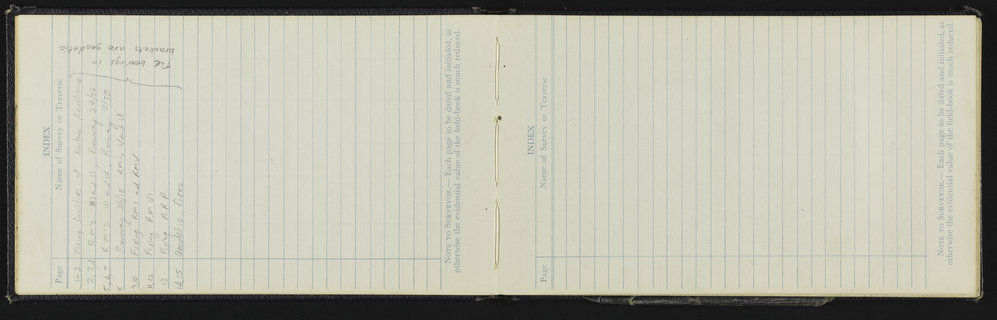 INDEX
Page Name of Survey or Traverse
1-2 Fixing facilities at Aerodrome
2,3,4 R.M.s I and II, Runway 24/06
5,6,7 R.M.s III and IV, Runway
8 Runway 36/18 R.M.s V and VI
9,10 Fixing R.M.s and R.M. V
11,12 Fixing R.M. VI
13 Fixing A.R.P.
14,15 Geodetic Fixes
The bearings in
brackets are geodetic
NOTE TO SURVEYOR.—Each page to be dated and initialed, as
otherwise the evidential value of the field-book is much reduced.
INDEX
Page Name of Survey or Traverse
NOTE TO SURVEYOR.—Each page to be dated and initialed, as
otherwise the evidential value of the field-book is much reduced.